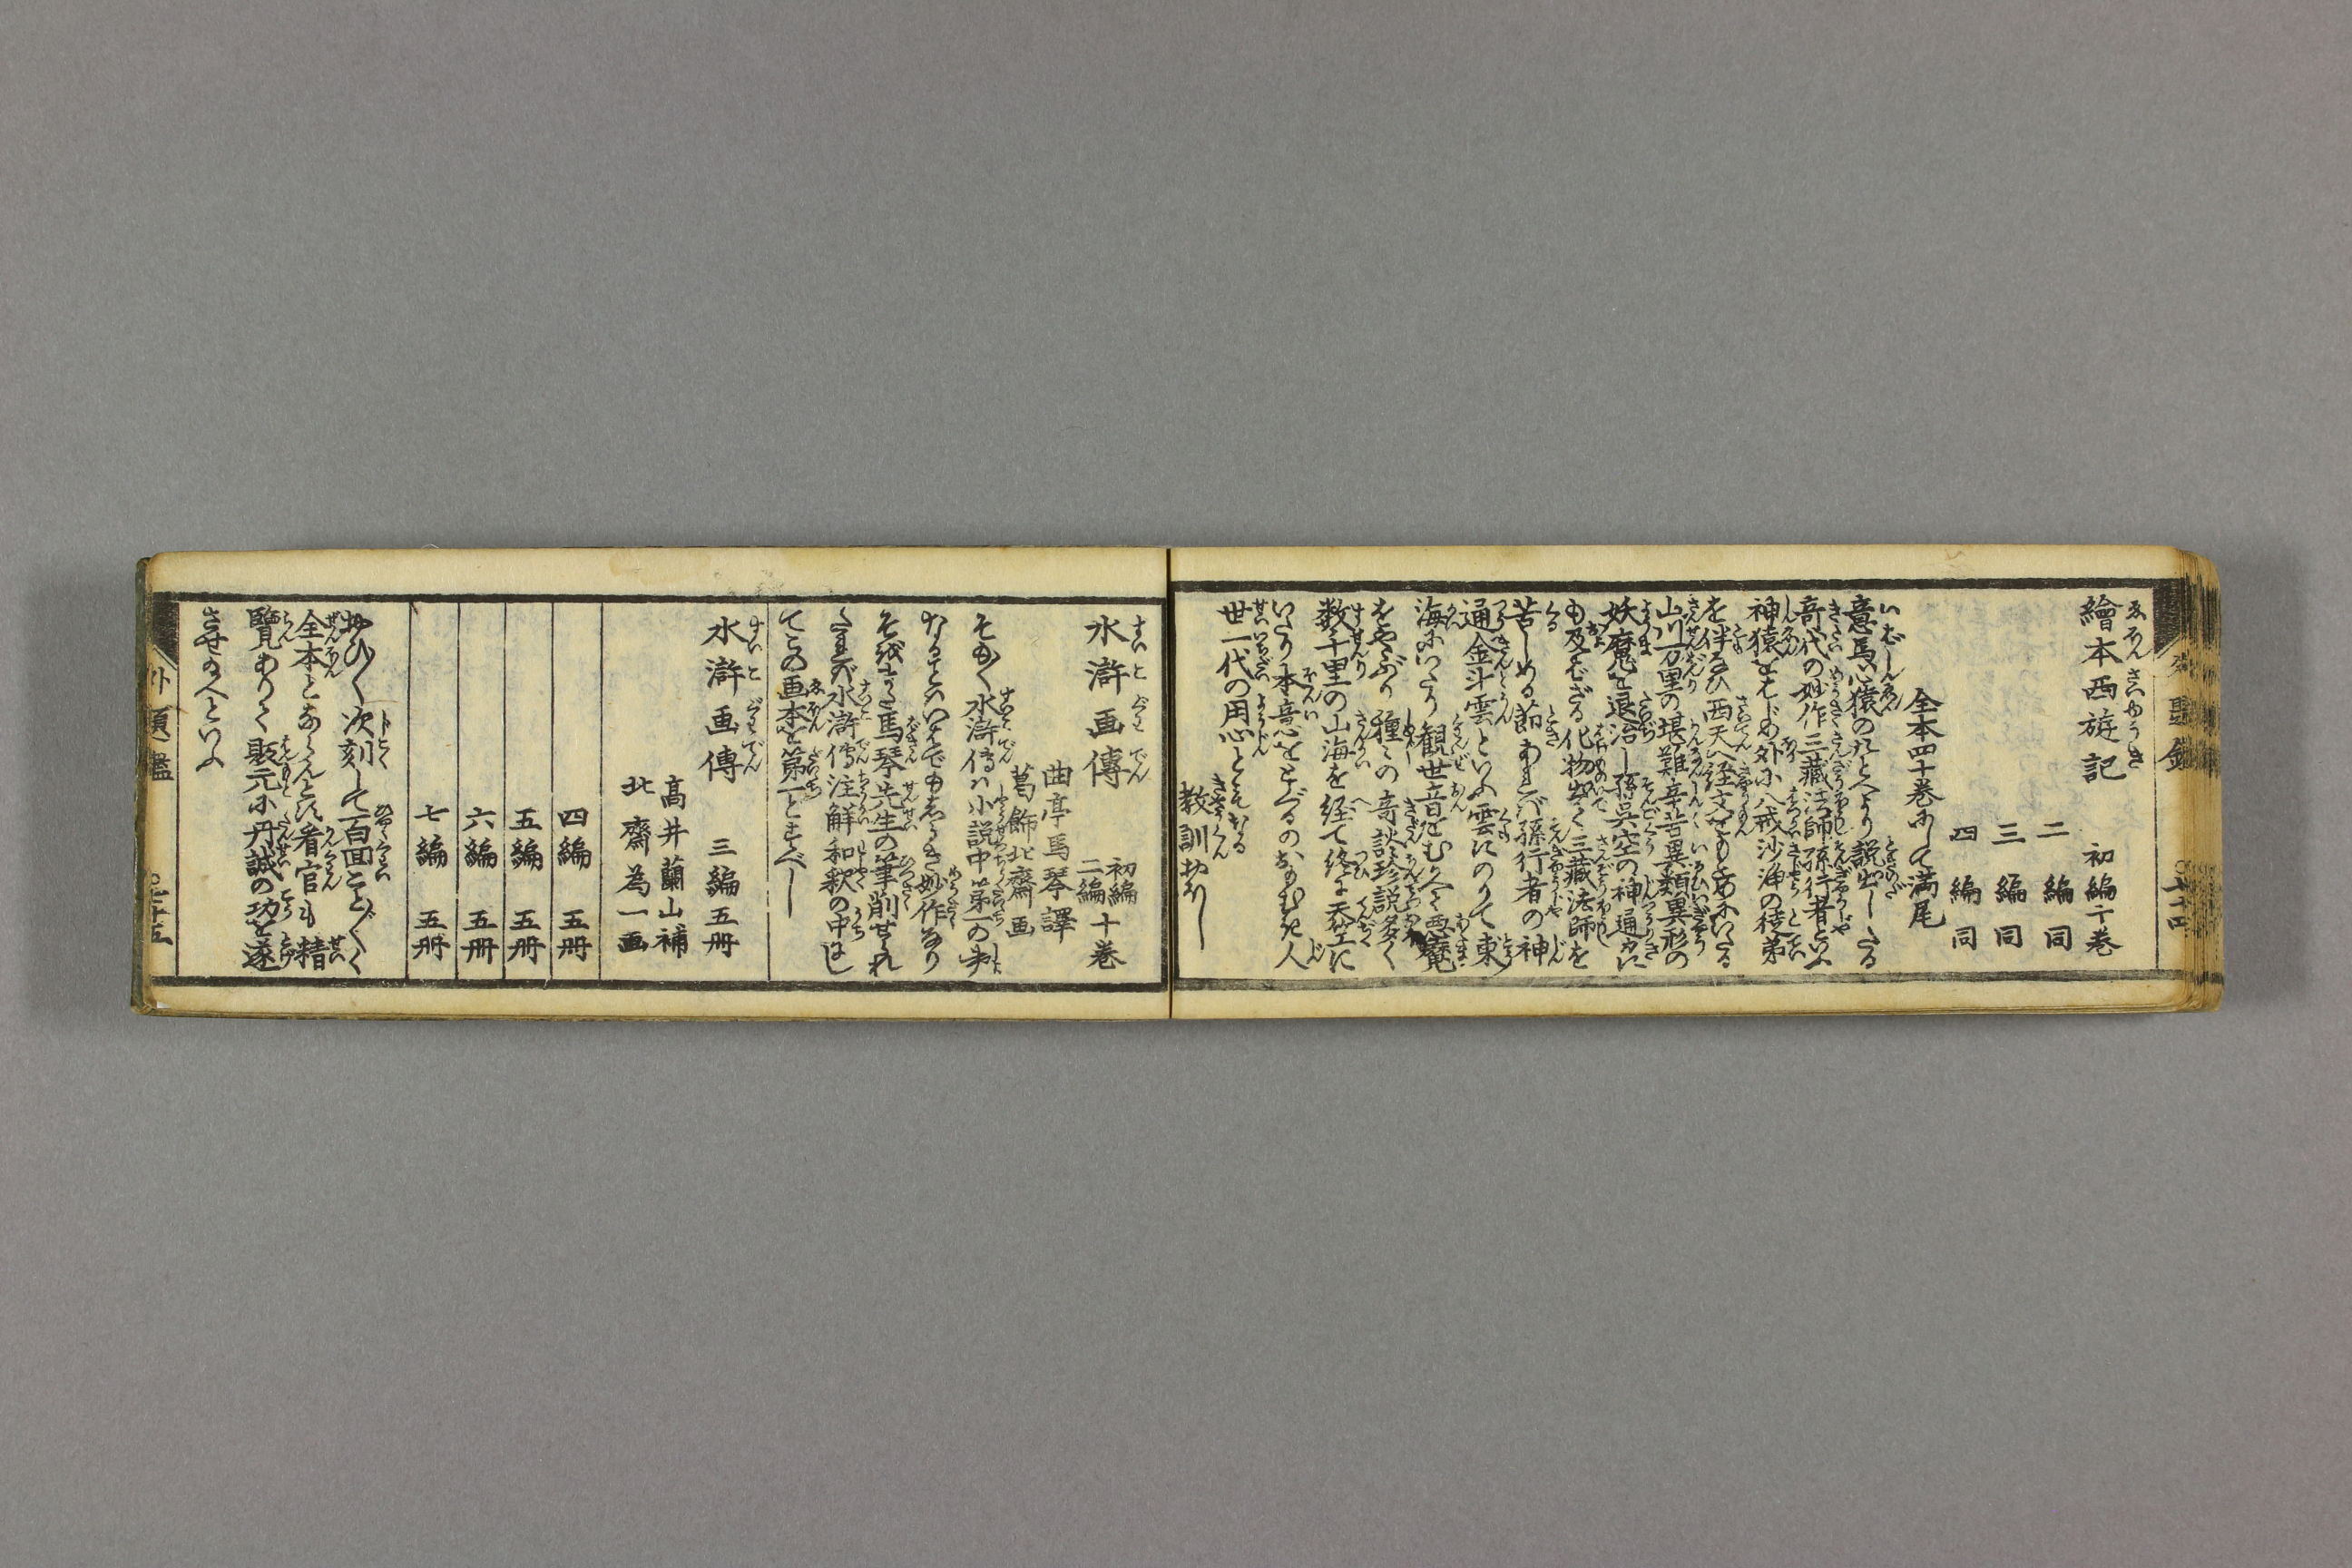 繪本西遊記 初編十巻
二編 同
三編 同
四編 同
全本四十巻にして満尾
意馬心猿のたとへより説出したる
奇代の妙作三蔵法師孫行者といふ
神猿をはじめ外に八戒沙浄の徒弟
を伴ひ西天へ経文をもとめにいたる
山川万里の堪難辛苦異類異形の
妖魔を退治し孫呉空の神通力に
も及ばざる化物出て三蔵法師を
苦しめる節あれば孫行者の神
通金斗雲といふ雲にのりて東
海にいたり観世音をむかへて悪魔
をやぶり種々の奇談珍説多く
数千里の山海を経て終に天竺に
いたり本意をとぐるのおもむき人
世一代の用心ともなる
教訓なし
水滸画傳 初編二編十巻
曲亭馬琴譯
葛飾北齋画
そも〳〵水滸傳ハ小説中第一の
なることハいふまでもなき妙作なり
馬琴先生の筆削せられ
水滸傳注解和釈の中にし
てこの画本を第一とすべし
水滸画傳 三編五冊
高井蘭山補
北齋為一画
四編 五冊
五編 五冊
六編 五冊
七編 五冊
おひ〳〵次刻して百回こと〴〵く
全本とならんとす看官も精
覧ありて販元に丹誠の功を遂
させ給へといふ
外題鑑 五